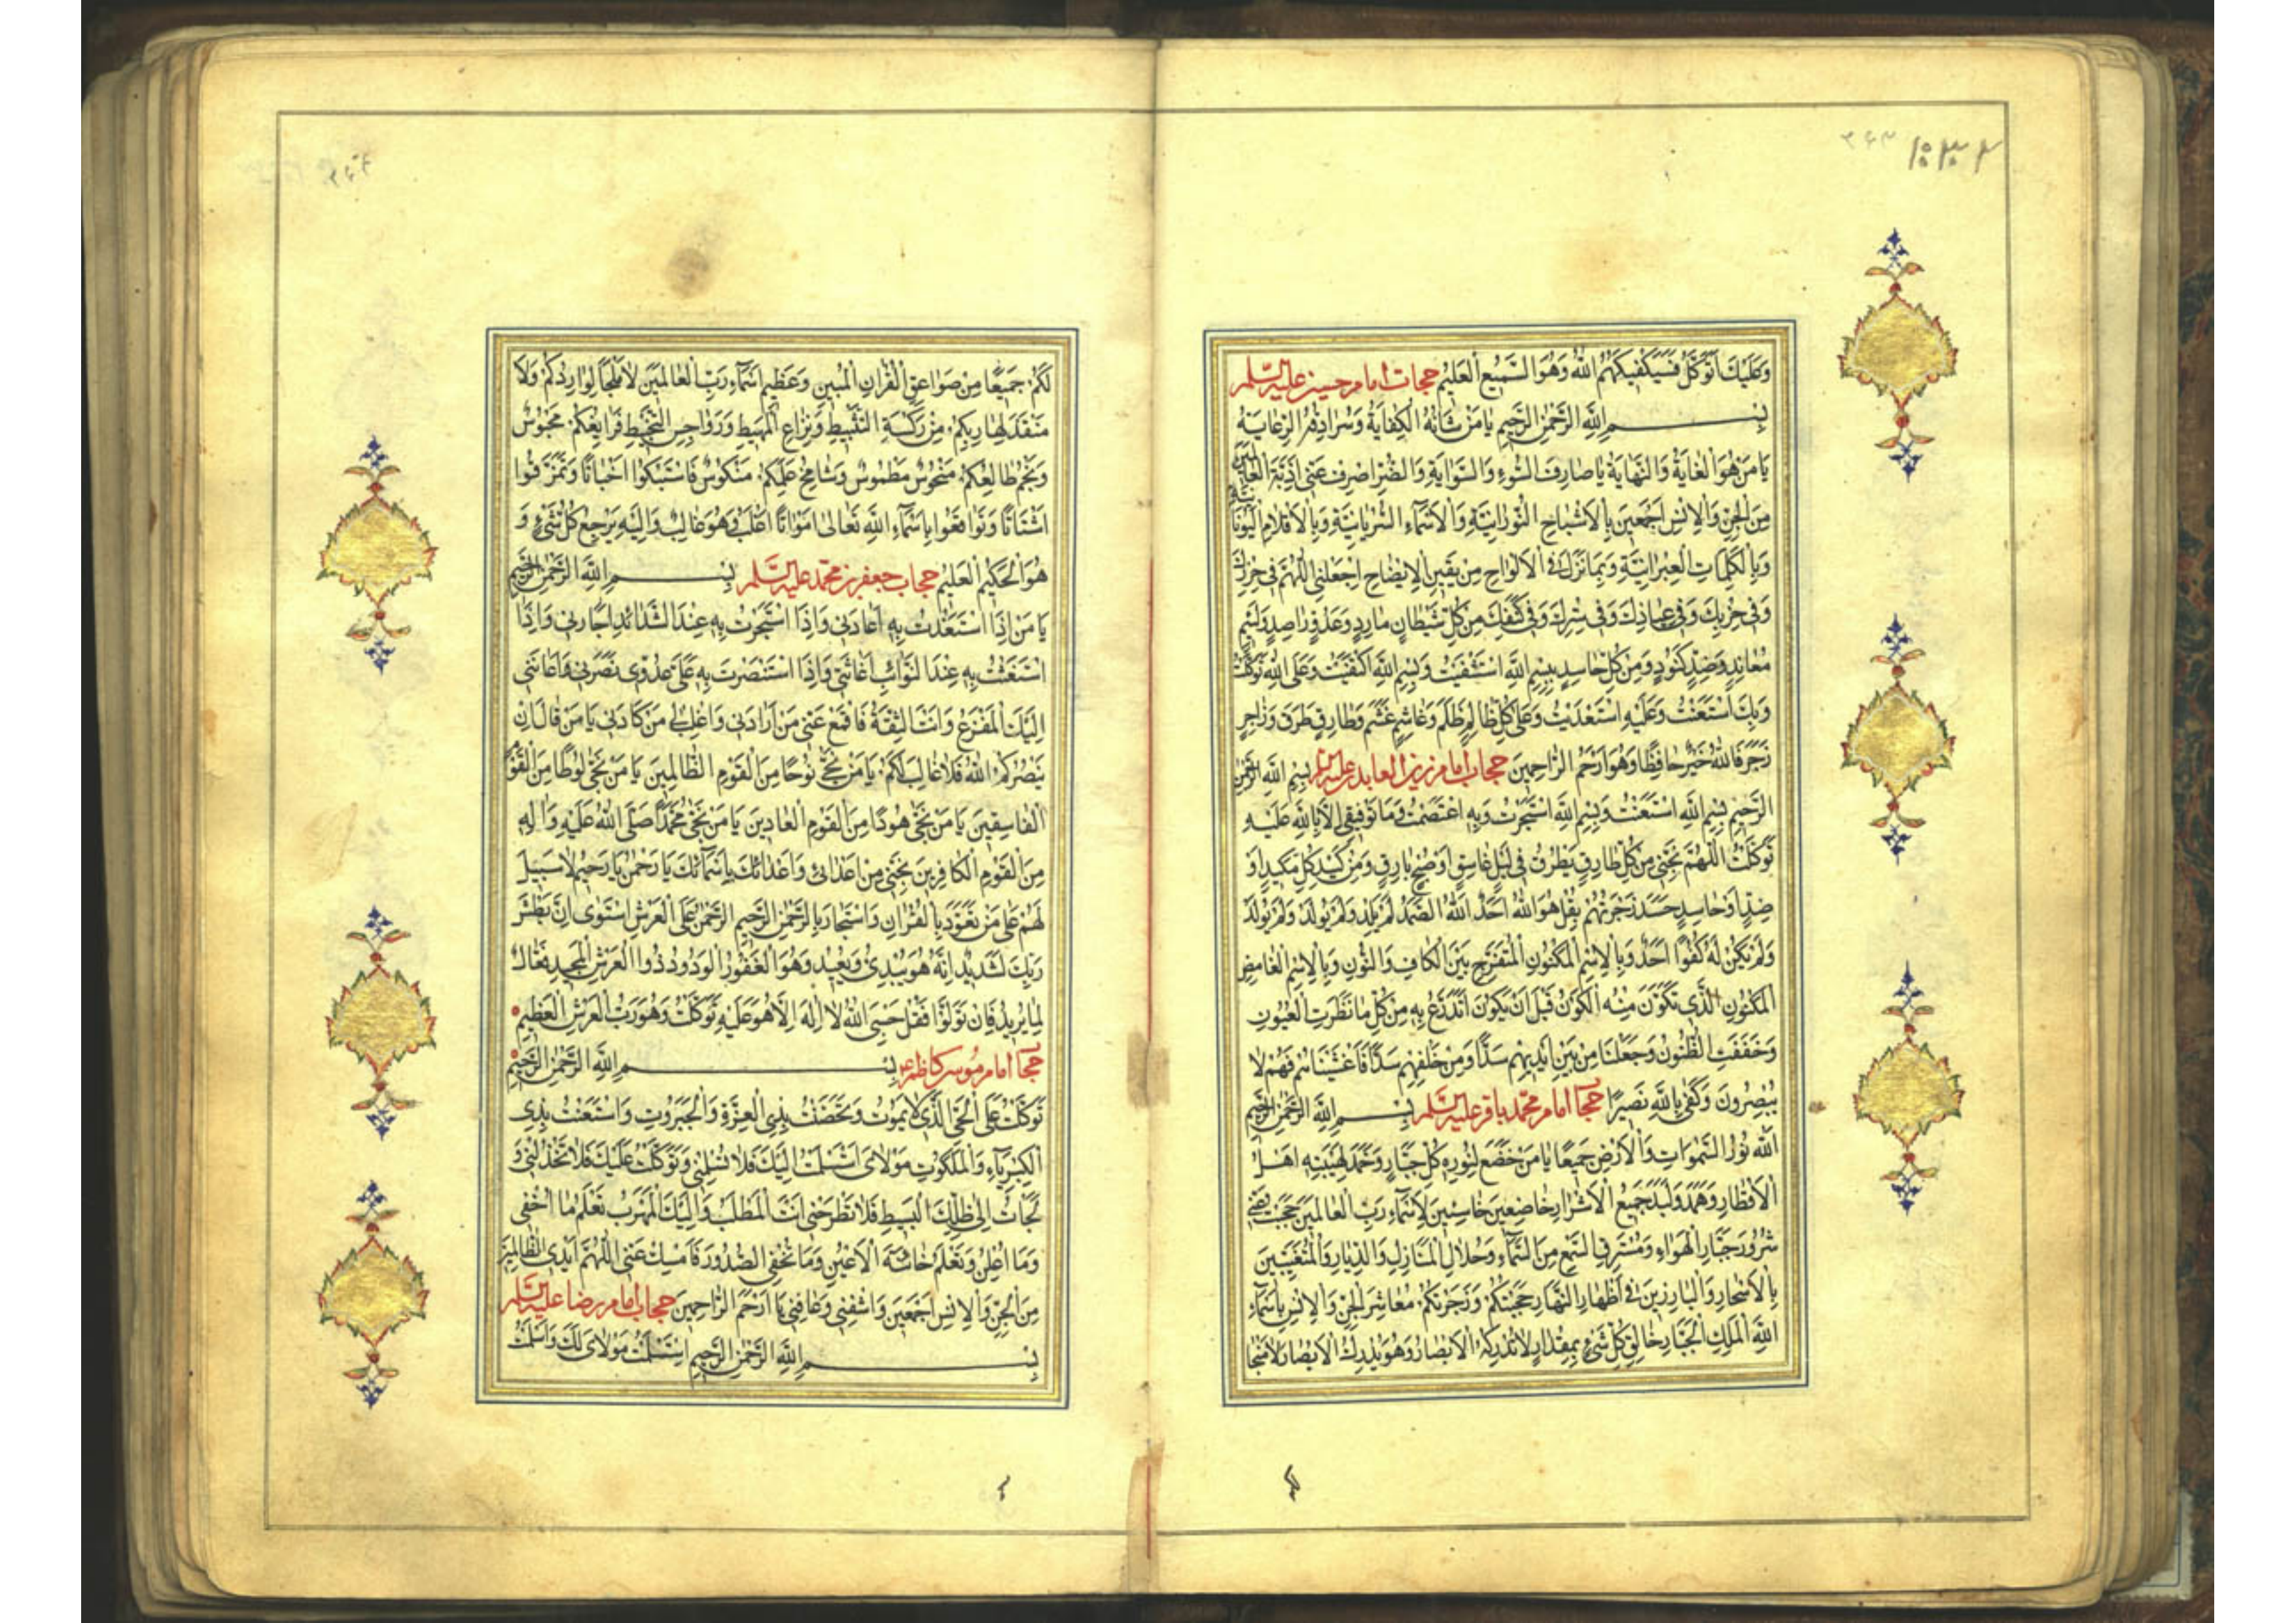 وَعَلَيْكَ أَتَوَكَّلُ فَسَيَكْفِيكَهُمُ اللهُ وَهُوَ السَّمِيعُ الْعَلِيمُ حجاب امام حسین علیه السلم
بِسْمِ اللهِ الرَّحْمٰنِ الرَّحِيمِ يَا مَنْ شَأْنُهُ الْكِفَايَةُ وَسُرَادِقُهُ الرِّعَايَةُ
يَا مَنْ هُوَ الْغَايَةُ وَالنِّهَايَةُ يَا صَارِفَ السُّوءِ وَالسَّوَايَةِ وَالضُّرِّ اصْرِفْ عَنِّي أَذِيَّةَ الْعَالَمِينَ
مِنَ الْجِنِّ وَالْإِنْسِ أَجْمَعِينَ بِالْأَشْبَاحِ النُّورَانِيَّةِ وَالْأَسْمَاءِ السُّرْيَانِيَّةِ وَبِالْأَقْلَامِ الْيُونَانِيَّةِ
وَبِالْكَلِمَاتِ الْعِبْرَانِيَّةِ وَبِمَا نَزَلَ فِي الْأَلْوَاحِ مِنْ يَقِينِ الْإِيضَاحِ اجْعَلْنِي اللّٰهُمَّ فِي حِرْزِكَ
وَفِي حِزْبِكَ وَفِي عِيَاذِكَ وَفِي سِتْرِكَ وَفِي كَنَفِكَ مِنْ كُلِّ شَيْطَانٍ مَارِدٍ وَعَدُوٍّ رَاصِدٍ وَلَئِيمٍ
مُعَانِدٍ وَضِدٍّ كَنُودٍ وَمِنْ كُلِّ حَاسِدٍ بِبِسْمِ اللهِ اسْتَشْفَيْتُ وَبِسْمِ اللهِ اكْتَفَيْتُ وَعَلَى اللهِ تَوَكَّلْتُ
وَبِكَ اسْتَعَنْتُ وَعَلَيْهِ اسْتَعْدَيْتُ وَعَلَى كُلِّ ظَالِمٍ ظَلَمَ وَغَاشِمٍ غَشَمَ وَطَارِقٍ طَرَقَ وَزَاجِرٍ
زَجَرَ فَاللهُ خَيْرٌ حَافِظًا وَهُوَ أَرْحَمُ الرَّاحِمِينَ حجاب امام زین العابدین علیه السلم بِسْمِ اللهِ الرَّحْمٰنِ
الرَّحِيمِ بِسْمِ اللهِ اسْتَعَنْتُ وَبِسْمِ اللهِ اسْتَجَرْتُ وَبِهِ اعْتَصَمْتُ وَمَا تَوْفِيقِي إِلَّا بِاللهِ عَلَيْهِ
تَوَكَّلْتُ اللّٰهُمَّ نَجِّنِي مِنْ كُلِّ طَارِقٍ يَطْرُقُ فِي لَيْلٍ غَاسِقٍ أَوْ صُبْحٍ بَارِقٍ وَمِنْ كَيْدِ كُلِّ مَكِيدٍ أَوْ
ضِدٍّ أَوْ حَاسِدٍ حَسَدَ زَجَرْتُهُمْ بِقُلْ هُوَ اللهُ أَحَدٌ اللهُ الصَّمَدُ لَمْ يَلِدْ وَلَمْ يُولَدْ وَلَمْ يُولَدْ
وَلَمْ يَكُنْ لَهُ كُفُوًا أَحَدٌ وَبِالْإِسْمِ الْمَكْنُونِ الْمُتَفَرِّجِ بَيْنَ الْكَافِ وَالنُّونِ وَبِالْإِسْمِ الْغَامِضِ
الْمَكْنُونِ الَّذِي تَكَوَّنَ مِنْهُ الْكَوْنُ قَبْلَ أَنْ يَكُونَ أَتَدَرَّعُ بِهِ مِنْ كُلِّ مَا نَظَرَتِ الْعُيُونُ
وَخَفَقَتِ الظُّنُونُ وَجَعَلْنَا مِنْ بَيْنِ أَيْدِيهِمْ سَدًّا وَمِنْ خَلْفِهِمْ سَدًّا فَأَغْشَيْنَاهُمْ فَهُمْ لَا
يُبْصِرُونَ وَكَفَى بِاللهِ نَصِيرًا حجاب امام محمد باقر علیه السلم بِسْمِ اللهِ الرَّحْمٰنِ الرَّحِيمِ
اللهُ نُورُ السَّمٰوَاتِ وَالْأَرْضِ جَمِيعًا يَا مَنْ خَضَعَ لِنُورِهِ كُلُّ جَبَّارٍ وَخَمَدَ لِهَيْبَتِهِ أَهْلُ
الْأَقْطَارِ وَهَمَدَ وَلَبَدَ جَمِيعُ الْأَشْرَارِ خَاضِعِينَ خَاسِئِينَ لِأَسْمَاءِ رَبِّ الْعَالَمِينَ حَجَبْتُ
شُرُورَ جَبَّارِ الْهَوَاءِ وَمُسْتَرِقِي السَّمْعِ مِنَ السَّمَاءِ وَحُلَّالِ الْمَنَازِلِ وَالدِّيَارِ وَالْمُتَغَيِّبِينَ
بِالْأَسْحَارِ وَالْبَارِزِينَ فِي أَظْهَارِ النَّهَارِ حَجَبْتُكُمْ وَزَجَرْتُكُمْ مَعَاشِرَ الْجِنِّ وَالْإِنْسِ بِأَسْمَاءِ
اللهِ الْمَلِكِ الْجَبَّارِ خَالِقِ كُلِّ شَيْءٍ بِمِقْدَارٍ لَا تُدْرِكُهُ الْأَبْصَارُ وَهُوَ يُدْرِكُ الْأَبْصَارَ لَا مَنْجَا
لَكُمْ جَمِيعًا مِنْ صَوَاعِقِ الْقُرْآنِ الْمُبِينِ وَعَظِيمِ أَسْمَاءِ رَبِّ الْعَالَمِينَ لَا مَلْجَأَ لِوَارِدِكُمْ وَلَا
مَنْقَذَ لِهَارِبِكُمْ مِنْ رَكْسَةِ التَّثْبِيطِ وَنِزَاعِ الْمَهِيطِ وَرَوَاجِسِ التَّخْبِيطِ فَرَائِعُكُمْ مَحْبُوسٌ
وَنَجْمُ طَالِعِكُمْ مَنْحُوسٌ مَطْمُوسٌ وَشَامِخُ عِلْمِكُمْ مَنْكُوسٌ فَاسْتَبْكُوا أَخْبَاتًا وَتَمَزَّقُوا
أَشْتَاتًا وَتَوَاقَعُوا بِأَسْمَاءِ اللهِ تَعَالَى أَمْوَاتًا أَغْلِبُ وَهُوَ غَالِبٌ وَإِلَيْهِ يَرْجِعُ كُلُّ شَيْءٍ وَ
هُوَ الْحَكِيمُ الْعَلِيمُ حجاب جعفر بن محمد علیه السلم بِسْمِ اللهِ الرَّحْمٰنِ الرَّحِيمِ
يَا مَنْ إِذَا اسْتَعَذْتُ بِهِ أَعَاذَنِي وَإِذَا اسْتَجَرْتُ بِهِ عِنْدَ الشَّدَائِدِ أَجَارَنِي وَإِذَا
اسْتَغَثْتُ بِهِ عِنْدَ النَّوَائِبِ أَغَاثَنِي وَإِذَا اسْتَنْصَرْتُ بِهِ عَلَى عَدُوِّي نَصَرَنِي وَأَعَانَنِي
إِلَيْكَ الْمَفْزَعُ وَأَنْتَ الثِّقَةُ فَاقْمَعْ عَنِّي مَنْ أَرَادَنِي وَاغْلِبْ لِي مَنْ كَادَنِي يَا مَنْ قَالَ إِنْ
يَنْصُرْكُمُ اللهُ فَلَا غَالِبَ لَكُمْ يَا مَنْ نَجَّى نُوحًا مِنَ الْقَوْمِ الظَّالِمِينَ يَا مَنْ نَجَّى لُوطًا مِنَ الْقَوْمِ
الْفَاسِقِينَ يَا مَنْ نَجَّى هُودًا مِنَ الْقَوْمِ الْعَادِينَ يَا مَنْ نَجَّى مُحَمَّدًا صَلَّى اللهُ عَلَيْهِ وَآلِهِ
مِنَ الْقَوْمِ الْكَافِرِينَ نَجِّنِي مِنْ أَعْدَائِي وَأَعْدَائِكَ بِأَسْمَائِكَ يَا رَحْمٰنُ يَا رَحِيمُ لَا سَبِيلَ
لَهُمْ عَلَى مَنْ تَعَوَّذَ بِالْقُرْآنِ وَاسْتَجَارَ بِالرَّحْمٰنِ الرَّحِيمِ الرَّحْمٰنُ عَلَى الْعَرْشِ اسْتَوَى إِنَّ بَطْشَ
رَبِّكَ لَشَدِيدٌ إِنَّهُ هُوَ يُبْدِئُ وَيُعِيدُ وَهُوَ الْغَفُورُ الْوَدُودُ ذُو الْعَرْشِ الْمَجِيدُ فَعَّالٌ
لِمَا يُرِيدُ فَإِنْ تَوَلَّوْا فَقُلْ حَسْبِيَ اللهُ لَا إِلٰهَ إِلَّا هُوَ عَلَيْهِ تَوَكَّلْتُ وَهُوَ رَبُّ الْعَرْشِ الْعَظِيمِ
حجاب امام موسی کاظم ع بِسْمِ اللهِ الرَّحْمٰنِ الرَّحِيمِ
تَوَكَّلْتُ عَلَى الْحَيِّ الَّذِي لَا يَمُوتُ وَتَحَصَّنْتُ بِذِي الْعِزَّةِ وَالْجَبَرُوتِ وَاسْتَعَنْتُ بِذِي
الْكِبْرِيَاءِ وَالْمَلَكُوتِ مَوْلَايَ اسْتَسْلَمْتُ إِلَيْكَ فَلَا تُسْلِمْنِي وَتَوَكَّلْتُ عَلَيْكَ فَلَا تَخْذُلْنِي وَ
لَجَأْتُ إِلَى ظِلِّكَ الْبَسِيطِ فَلَا تَطْرَحْنِي أَنْتَ الْمَطْلَبُ وَإِلَيْكَ الْمَهْرَبُ تَعْلَمُ مَا أُخْفِي
وَمَا أُعْلِنُ وَتَعْلَمُ خَائِنَةَ الْأَعْيُنِ وَمَا تُخْفِي الصُّدُورُ فَأَمْسِكْ عَنِّي اللّٰهُمَّ أَيْدِيَ الظَّالِمِينَ
مِنَ الْجِنِّ وَالْإِنْسِ أَجْمَعِينَ وَاشْفِنِي وَعَافِنِي يَا أَرْحَمَ الرَّاحِمِينَ حجاب امام رضا علیه السلم
بِسْمِ اللهِ الرَّحْمٰنِ الرَّحِيمِ اسْتَسْلَمْتُ مَوْلَايَ لَكَ وَأَسْلَمْتُ